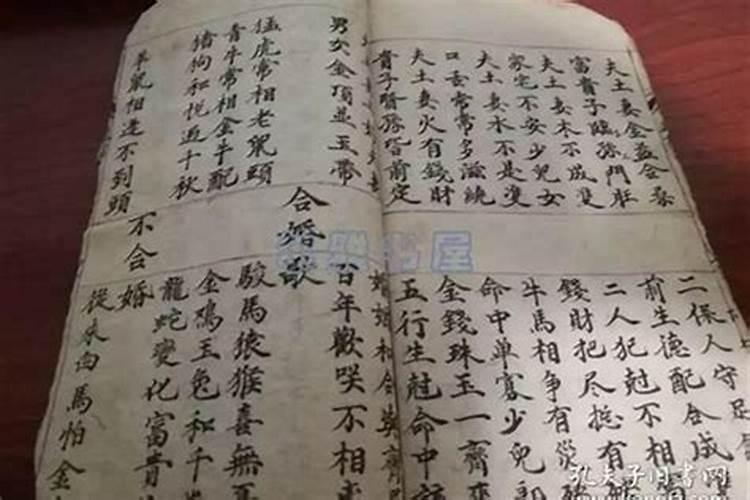 夫土妻金益合
富貴子臨孫門
夫土妻木不成雙
家宅不安少兒女
夫土妻水不是雙
口舌常常多滋繞
夫土妻火有錢財
貴子賢孫皆前定
二保人守足
前生德配合成
二人犯尅不相
錢財把尽總有
牛馬相争有災
命中單寡少兒
金錢珠玉一齊
五行生尅命中
婚姻和合美
男女金頂並玉帶
百年歡咲不相
合婚歌
猛虎常相老鼠頭
青牛常相金牛配
猪狗和悦過千秋
駿馬猿猴喜無
金鸡玉兔和千
龍蛇變化富貴
不合婚
羊鼠相逢不到頭
從来白馬怕金
书屋
孔夫子旧书网